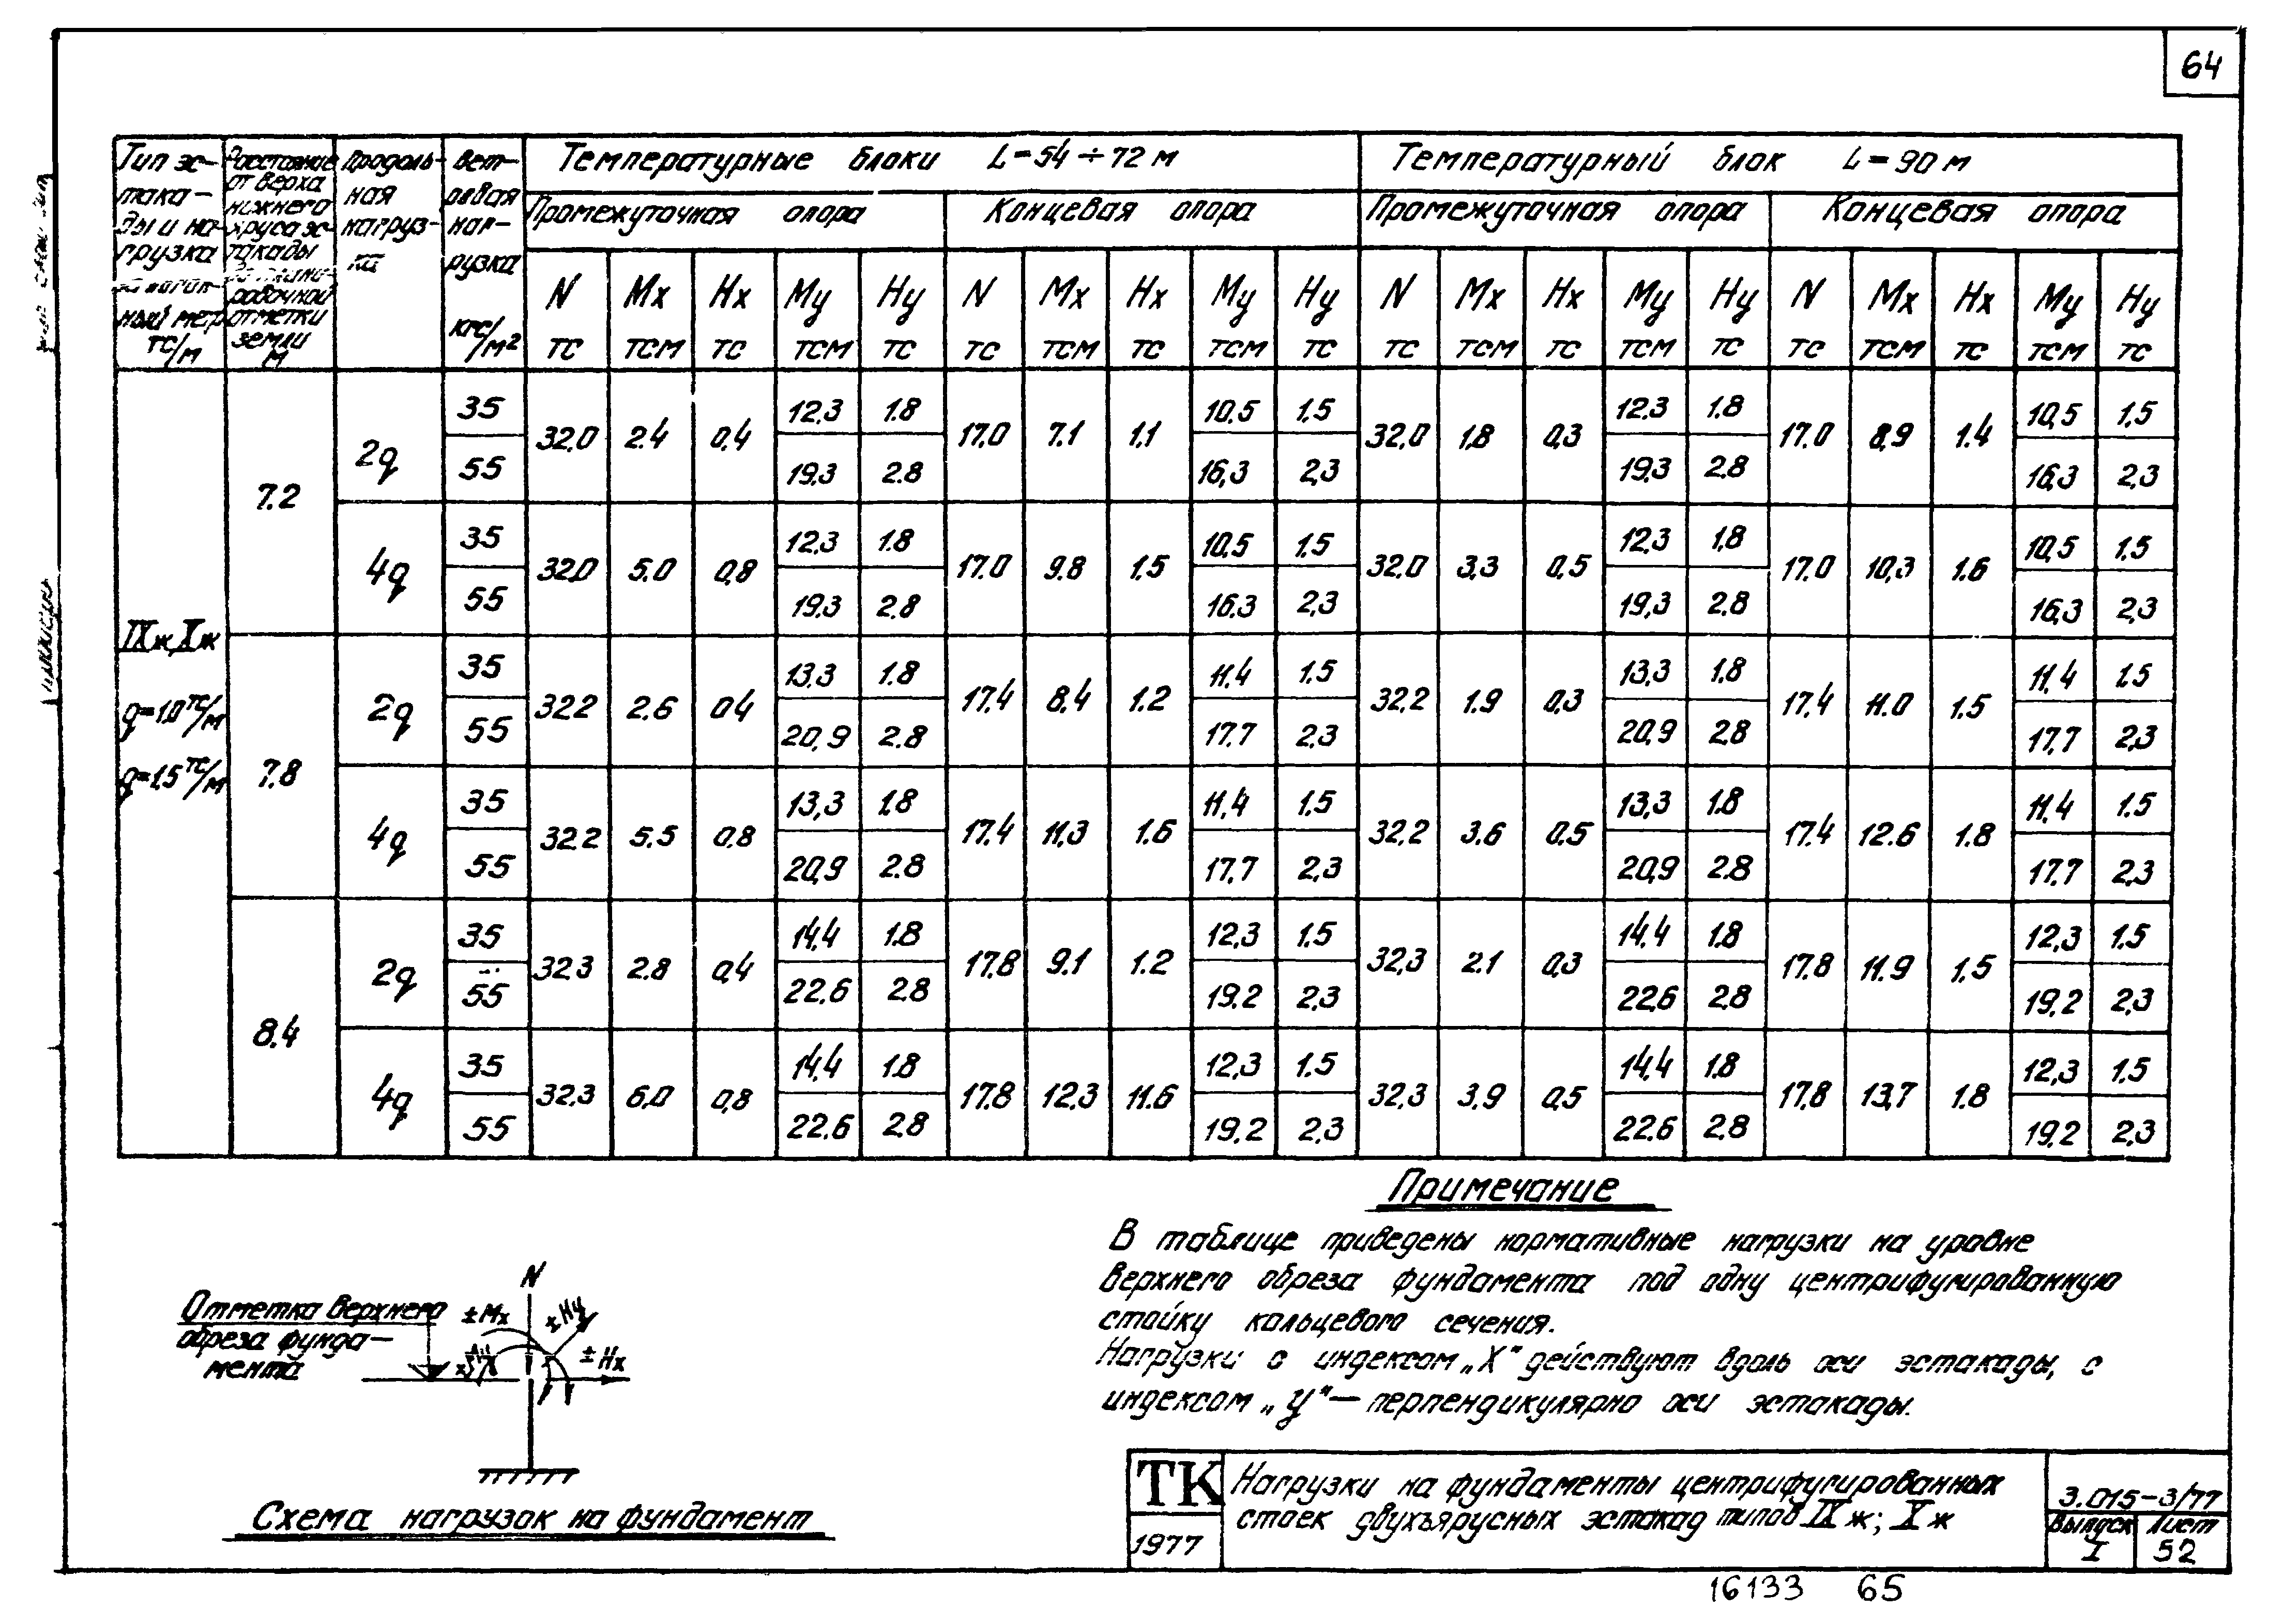 64
Тип эс-
така-
ды и на-
грузка
ный метр
тс/м
Расстояние
от верха
нижнего
яруса эс-
такады
ровочной
отметки
земли
м
Продоль-
ная
нагруз-
ка
Вет-
ровая
наг-
рузка
кгс/м²
Температурные блоки L=54÷72 м
Температурный блок L=90 м
Промежуточная опора Концевая опора Промежуточная опора Концевая опора
N Mx Hx My Hy N Mx Hx My Hy N Mx Hx My Hy N Mx Hx My Hy
тс тсм тс тсм тс тс тсм тс тсм тс тс тсм тс тсм тс тс тсм тс тсм тс
IXж, Xж
q=1.0 тс/м
q=1.5 тс/м
7.2
2q
35 12.3 1.8 10.5 1.5 12.3 1.8 10.5 1.5
32.0 2.4 0.4 17.0 7.1 1.1 32.0 1.8 0.3 17.0 8.9 1.4
55 19.3 2.8 16.3 2.3 19.3 2.8 16.3 2.3
4q
35 12.3 1.8 10.5 1.5 12.3 1.8 10.5 1.5
32.0 5.0 0.8 17.0 9.8 1.5 32.0 3.3 0.5 17.0 10.3 1.6
55 19.3 2.8 16.3 2.3 19.3 2.8 16.3 2.3
7.8
2q
35 13.3 1.8 11.4 1.5 13.3 1.8 11.4 1.5
32.2 2.6 0.4 17.4 8.4 1.2 32.2 1.9 0.3 17.4 11.0 1.5
55 20.9 2.8 17.7 2.3 20.9 2.8 17.7 2.3
4q
35 13.3 1.8 11.4 1.5 13.3 1.8 11.4 1.5
32.2 5.5 0.8 17.4 11.3 1.6 32.2 3.6 0.5 17.4 12.6 1.8
55 20.9 2.8 17.7 2.3 20.9 2.8 17.7 2.3
8.4
2q
35 14.4 1.8 12.3 1.5 14.4 1.8 12.3 1.5
32.3 2.8 0.4 17.8 9.1 1.2 32.3 2.1 0.3 17.8 11.9 1.5
55 22.6 2.8 19.2 2.3 22.6 2.8 19.2 2.3
4q
35 14.4 1.8 12.3 1.5 14.4 1.8 12.3 1.5
32.3 6.0 0.8 17.8 12.3 11.6 32.3 3.9 0.5 17.8 13.7 1.8
55 22.6 2.8 19.2 2.3 22.6 2.8 19.2 2.3
Примечание
В таблице приведены нормативные нагрузки на уровне
верхнего обреза фундамента под одну центрифугированную
стойку кольцевого сечения.
Нагрузки с индексом „X" действуют вдоль оси эстакады, с
индексом „У" — перпендикулярно оси эстакады.
Отметка верхнего
обреза фунда-
мента
N
±Mx
±Hy
±Hx
Схема нагрузок на фундамент
ТК
1977
Нагрузки на фундаменты центрифугированных
стоек двухъярусных эстакад типов IX ж; X ж
3.015-3/77
Выпуск Лист
I 52
16133 65